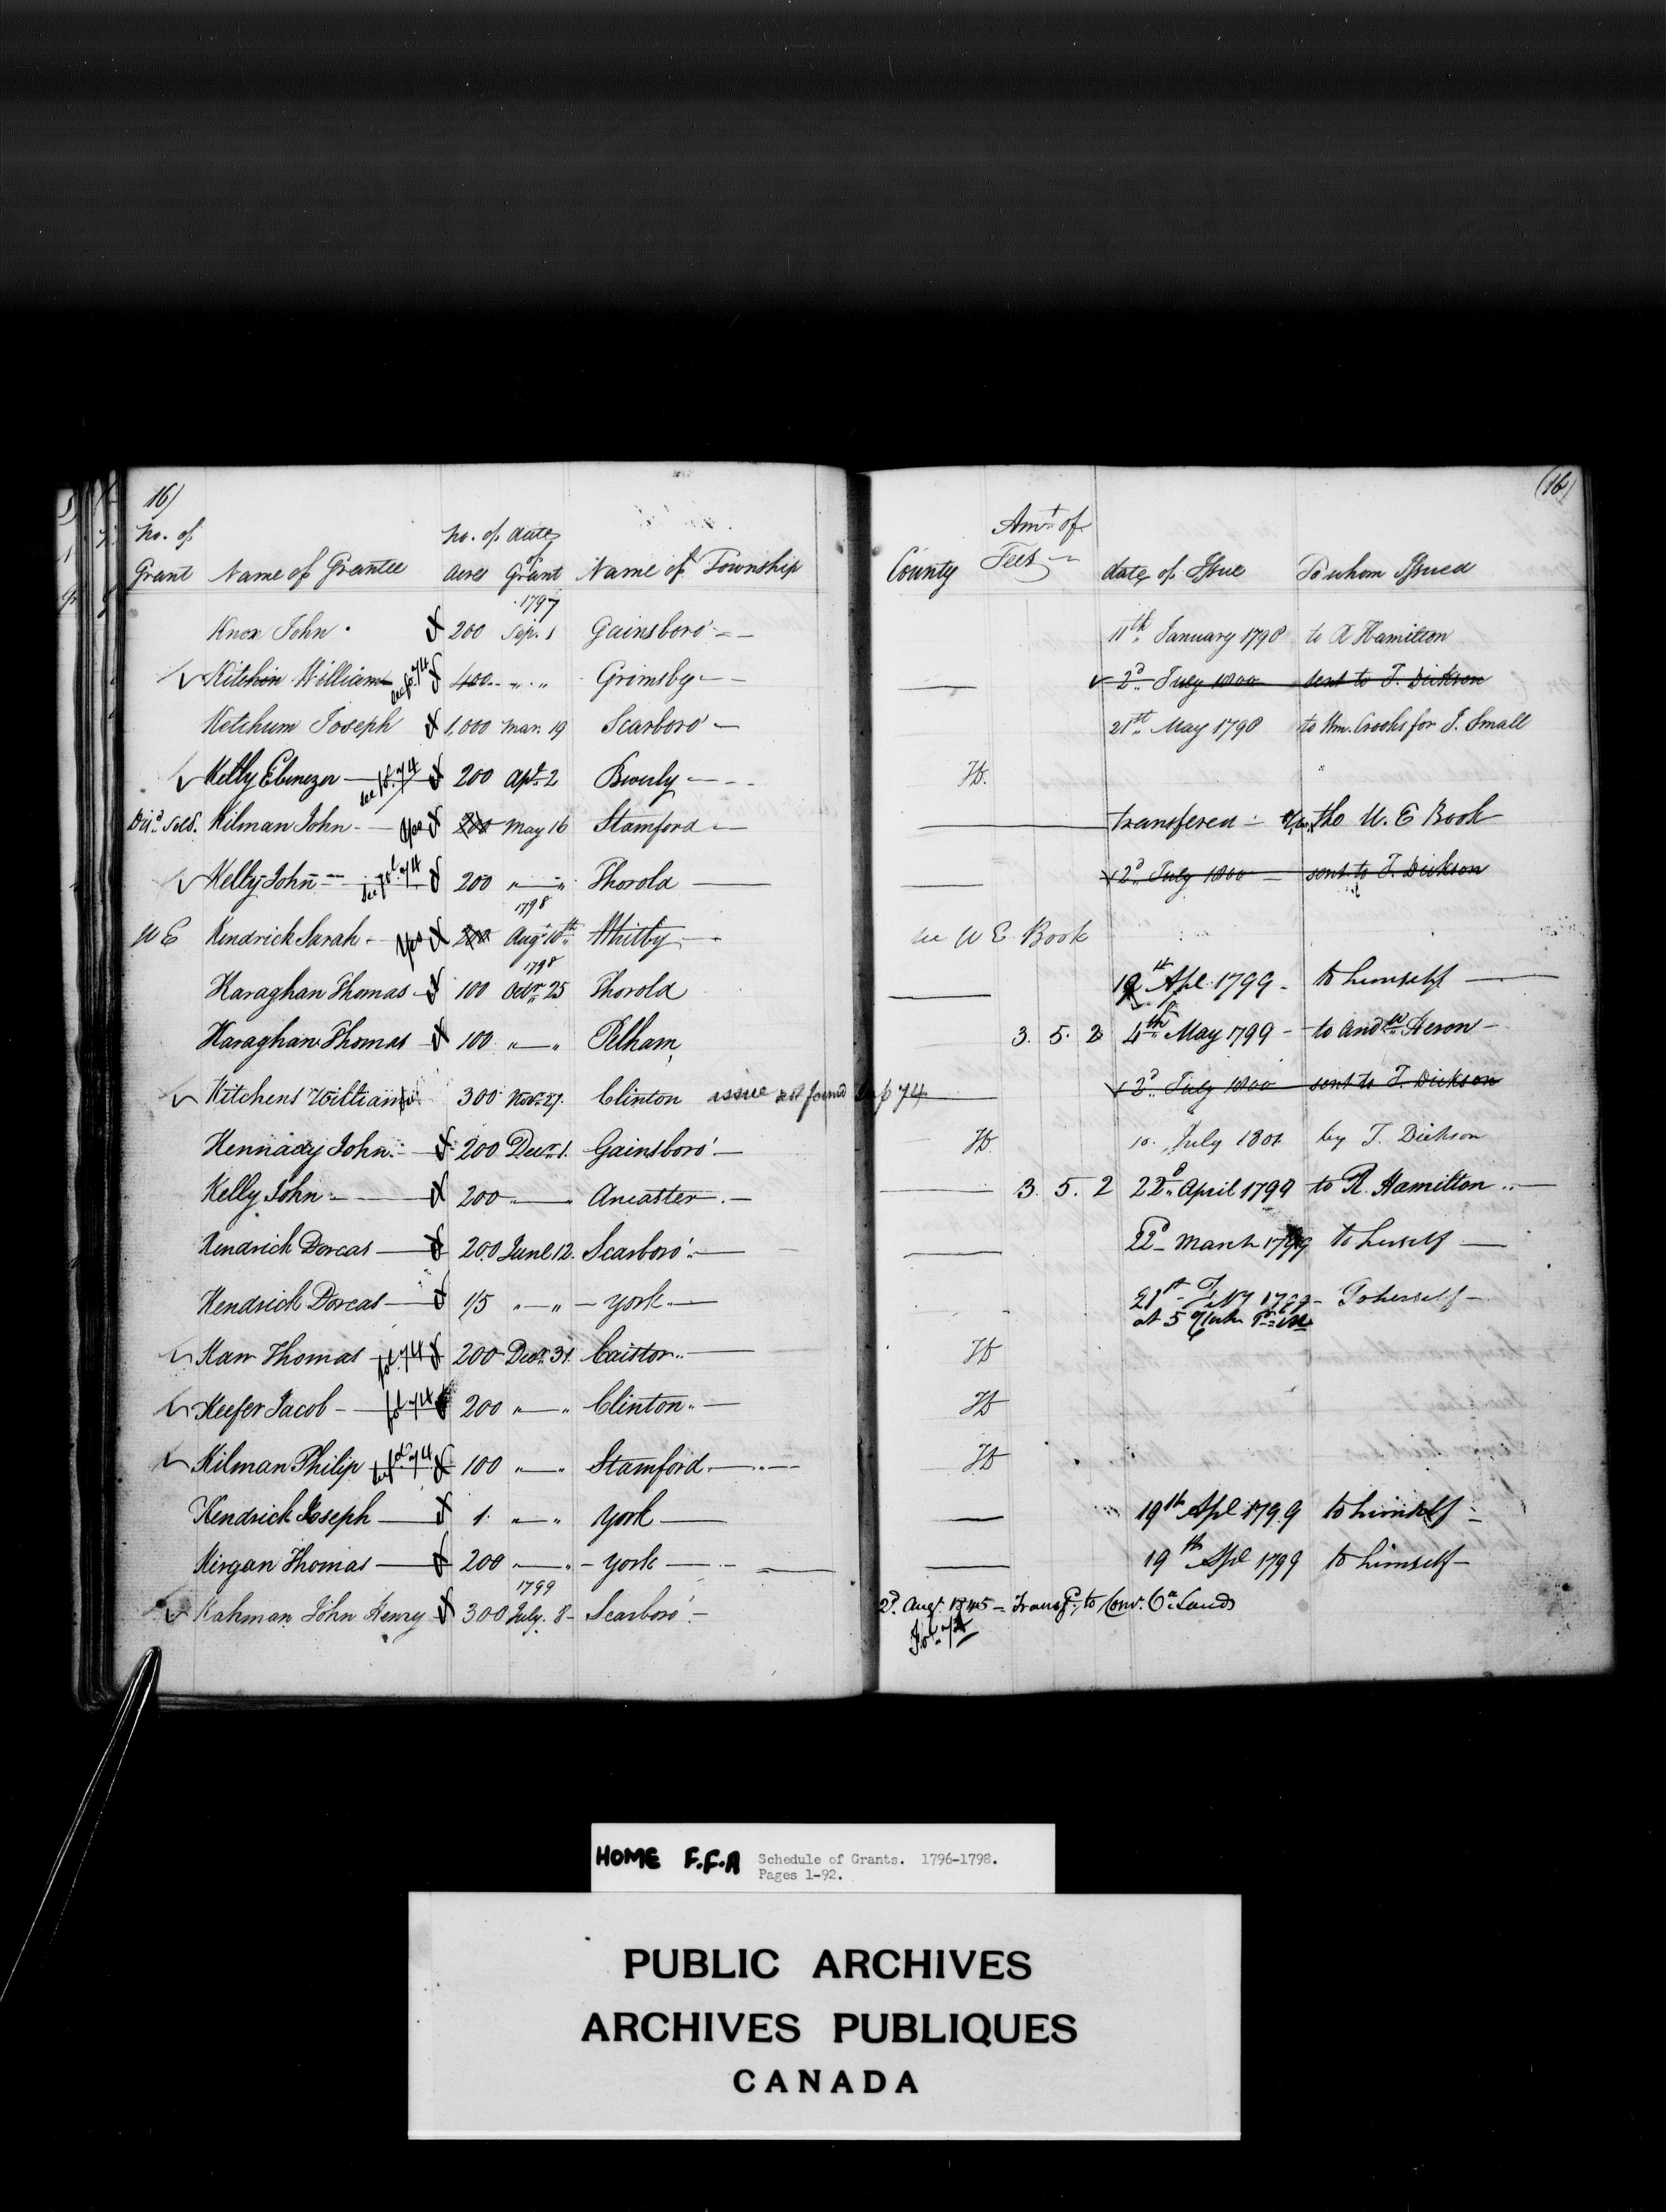 16)
(16)
No. of
No. of date
Amt. of
Grant Name of Grantee Acres of Grant Name of Township County Fees date of Issue To whom Issued
1797
Knox John 200 Sep. 1 Gainsboro' 11th January 1798 to R Hamilton
Kitchin William see fo. 74 400 " " Grimsby 2d July 1800 sent to T. Dickson
Ketchum Joseph 1,000 Mar. 19 Scarboro' 21st May 1798 to Wm. Crooks for J. Small
Kelly Ebenezer see fol. 74 200 Apl. 2 Beverly
Kilman John 200 May 16 Stamford transferred the U. E Book
Kelly John see fol. 74 200 " " Thorold 2d July 1800 sent to T. Dickson
1798
U E Kendrick Sarah 200 Augt 10th Whitby see U E Book
1798
Karaghan Thomas 100 Octr. 25 Thorold 19th Apl 1799 to himself
Karaghan Thomas 100 " " Pelham 3. 5. 2 4th May 1799 to Andw. Heron
Kitchens William 300 Novr. 27. Clinton issue not found 74 2d July 1800 sent to T. Dickson
Kennady John 200 Decr. 1. Gainsboro' 10. July 1801 by T. Dickson
Kelly John 200 " " Ancaster 3. 5. 2 22d April 1799 to R. Hamilton
Kendrick Dorcas 200 June 12. Scarboro' 22d March 1799 to herself
Kendrick Dorcas 1/5 " " York 21st 1799 To herself
at 5
Karr Thomas fol. 74 200 Decr. 31. Caistor
Keefer Jacob fol 74 200 " " Clinton
Kilman Philip fol 74 100 " " Stamford
Kendrick Joseph 1. " " York 19th Apl 1799 to himself
Kirgan Thomas 200 " " York 19th Apl 1799 to himself
1799
Kahman John Henry 300 July. 8 Scarboro' 2d. Augt. 1845 - Transfd. to Comr. Cn. Lands
HOME F.F.A Schedule of Grants. 1796-1798.
Pages 1-92.
PUBLIC ARCHIVES
ARCHIVES PUBLIQUES
CANADA